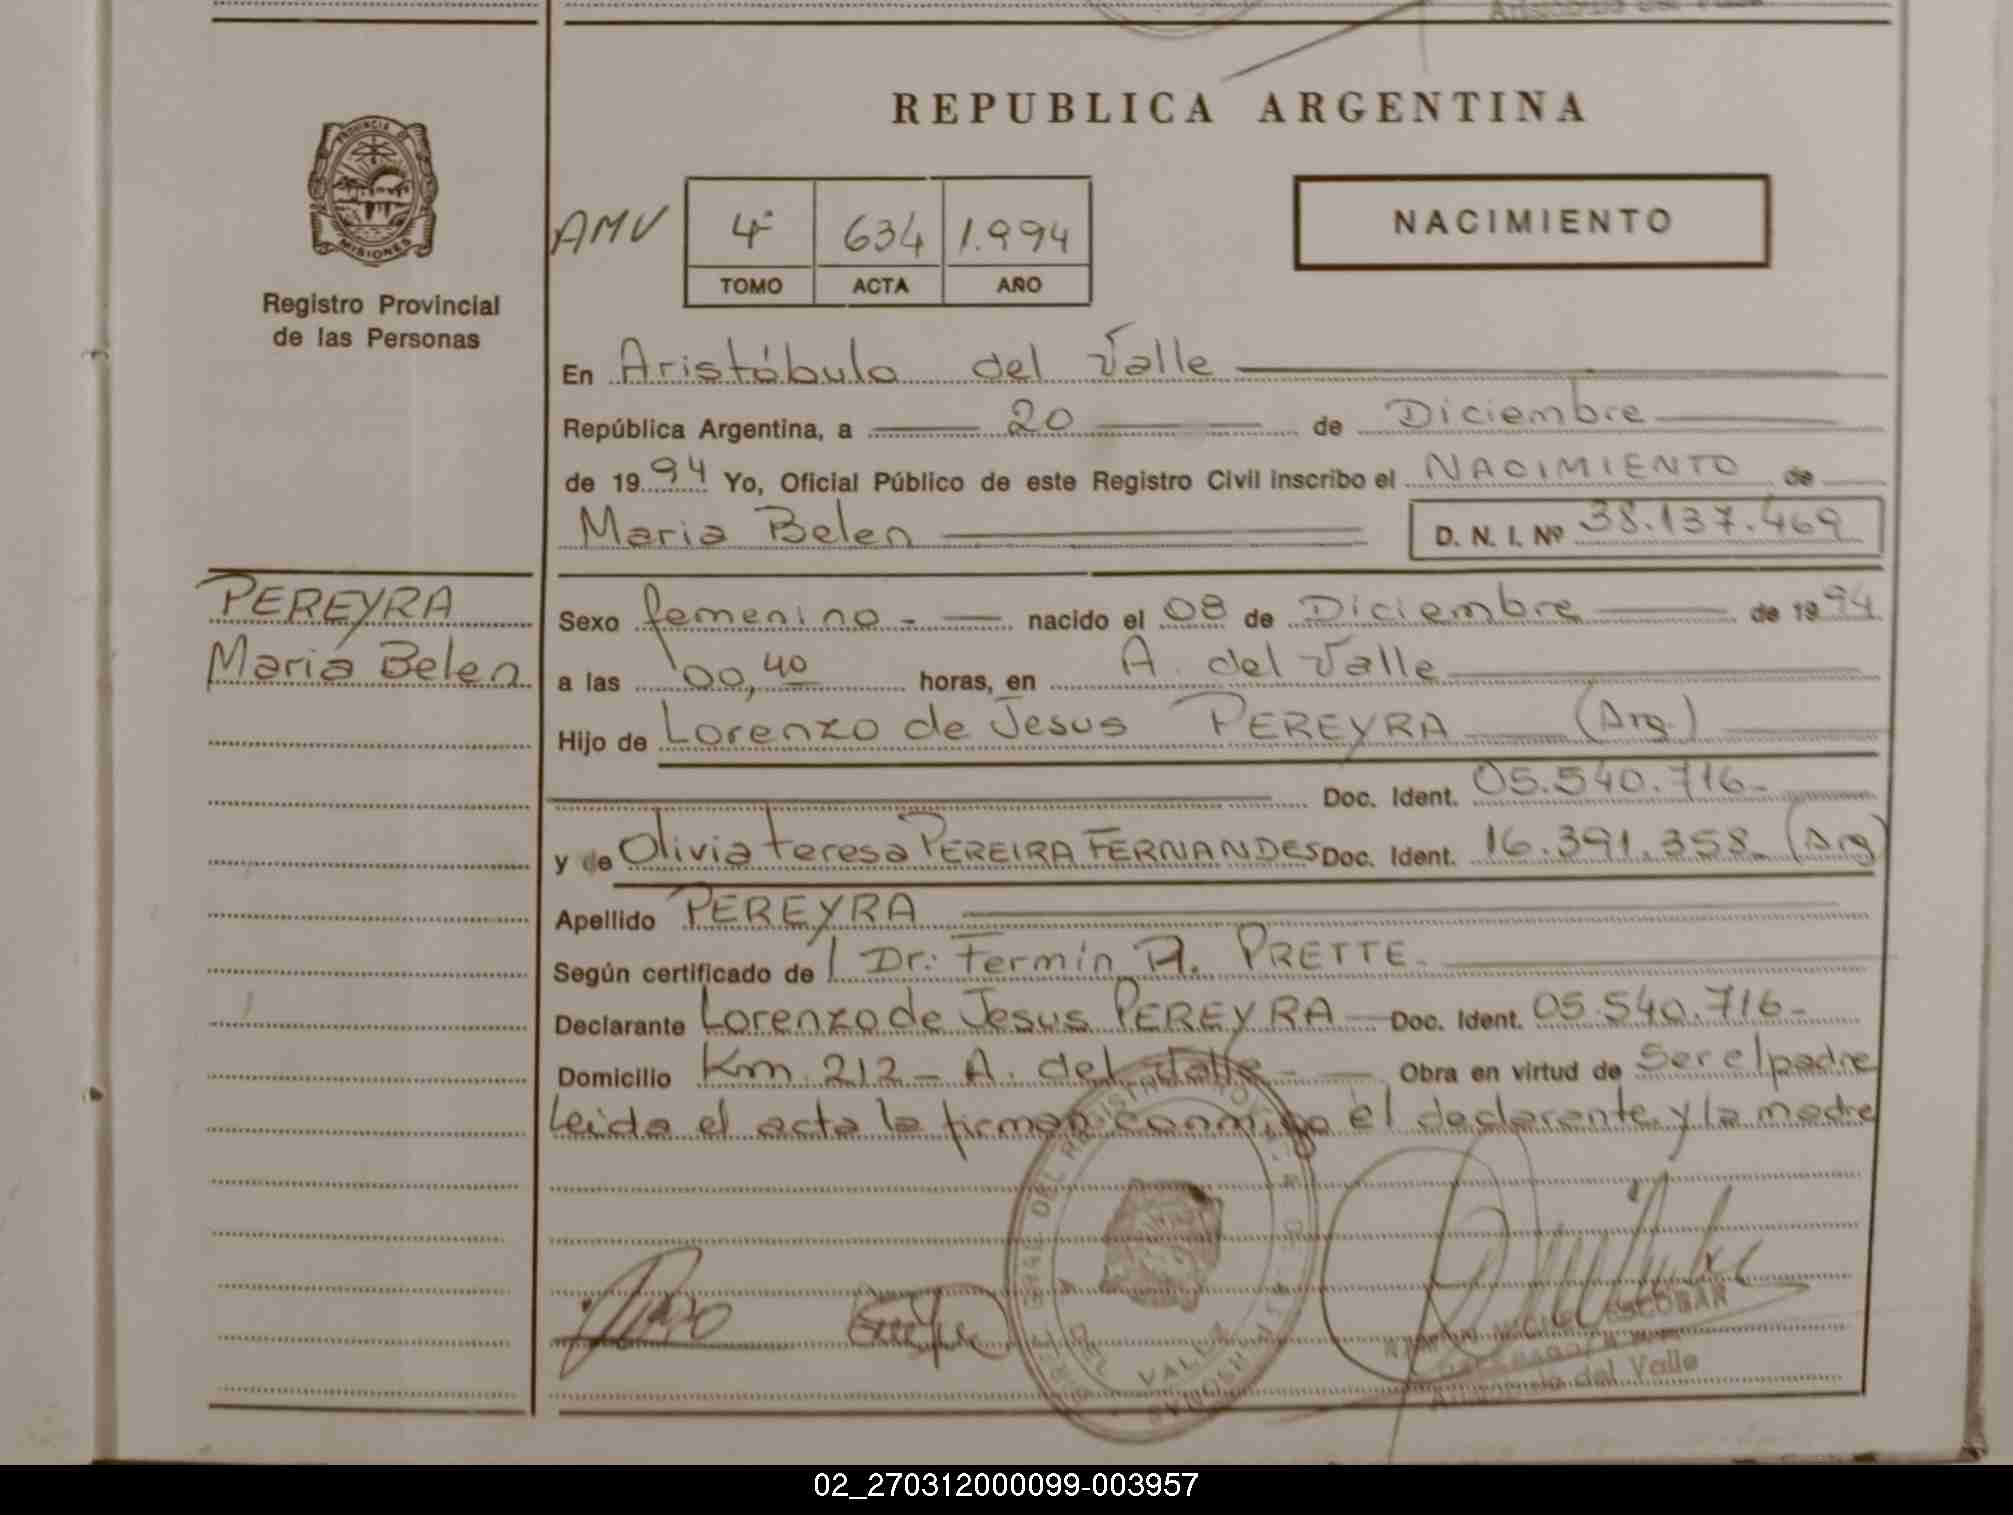 REPUBLICA ARGENTINA
PROVINCIA DE MISIONES
Registro Provincial
de las Personas
AMV
4º 634 1.994
TOMO ACTA AÑO
NACIMIENTO
En Aristóbulo del Valle
República Argentina, a 20 de Diciembre
de 1994 Yo, Oficial Público de este Registro Civil inscribo el NACIMIENTO de
Maria Belen D. N. I. Nº 38.137.469
PEREYRA
Maria Belen
Sexo femenino - nacido el 08 de Diciembre de 1994
a las 00,40 horas, en A. del Valle
Hijo de Lorenzo de Jesus PEREYRA (Arg.)
Doc. Ident. 05.540.716-
y de Olivia teresa PEREIRA FERNANDES Doc. Ident. 16.391.358- (Arg)
Apellido PEREYRA
Según certificado de Dr: Fermín A. PRETTE.
Declarante Lorenzo de Jesus PEREYRA Doc. Ident. 05.540.716-
Domicilio Km 212 - A. del Valle - Obra en virtud de ser el padre
Leida el acta la firman conmigo el declarante y la madre
ESCOBAR
del Valle
02_270312000099-003957